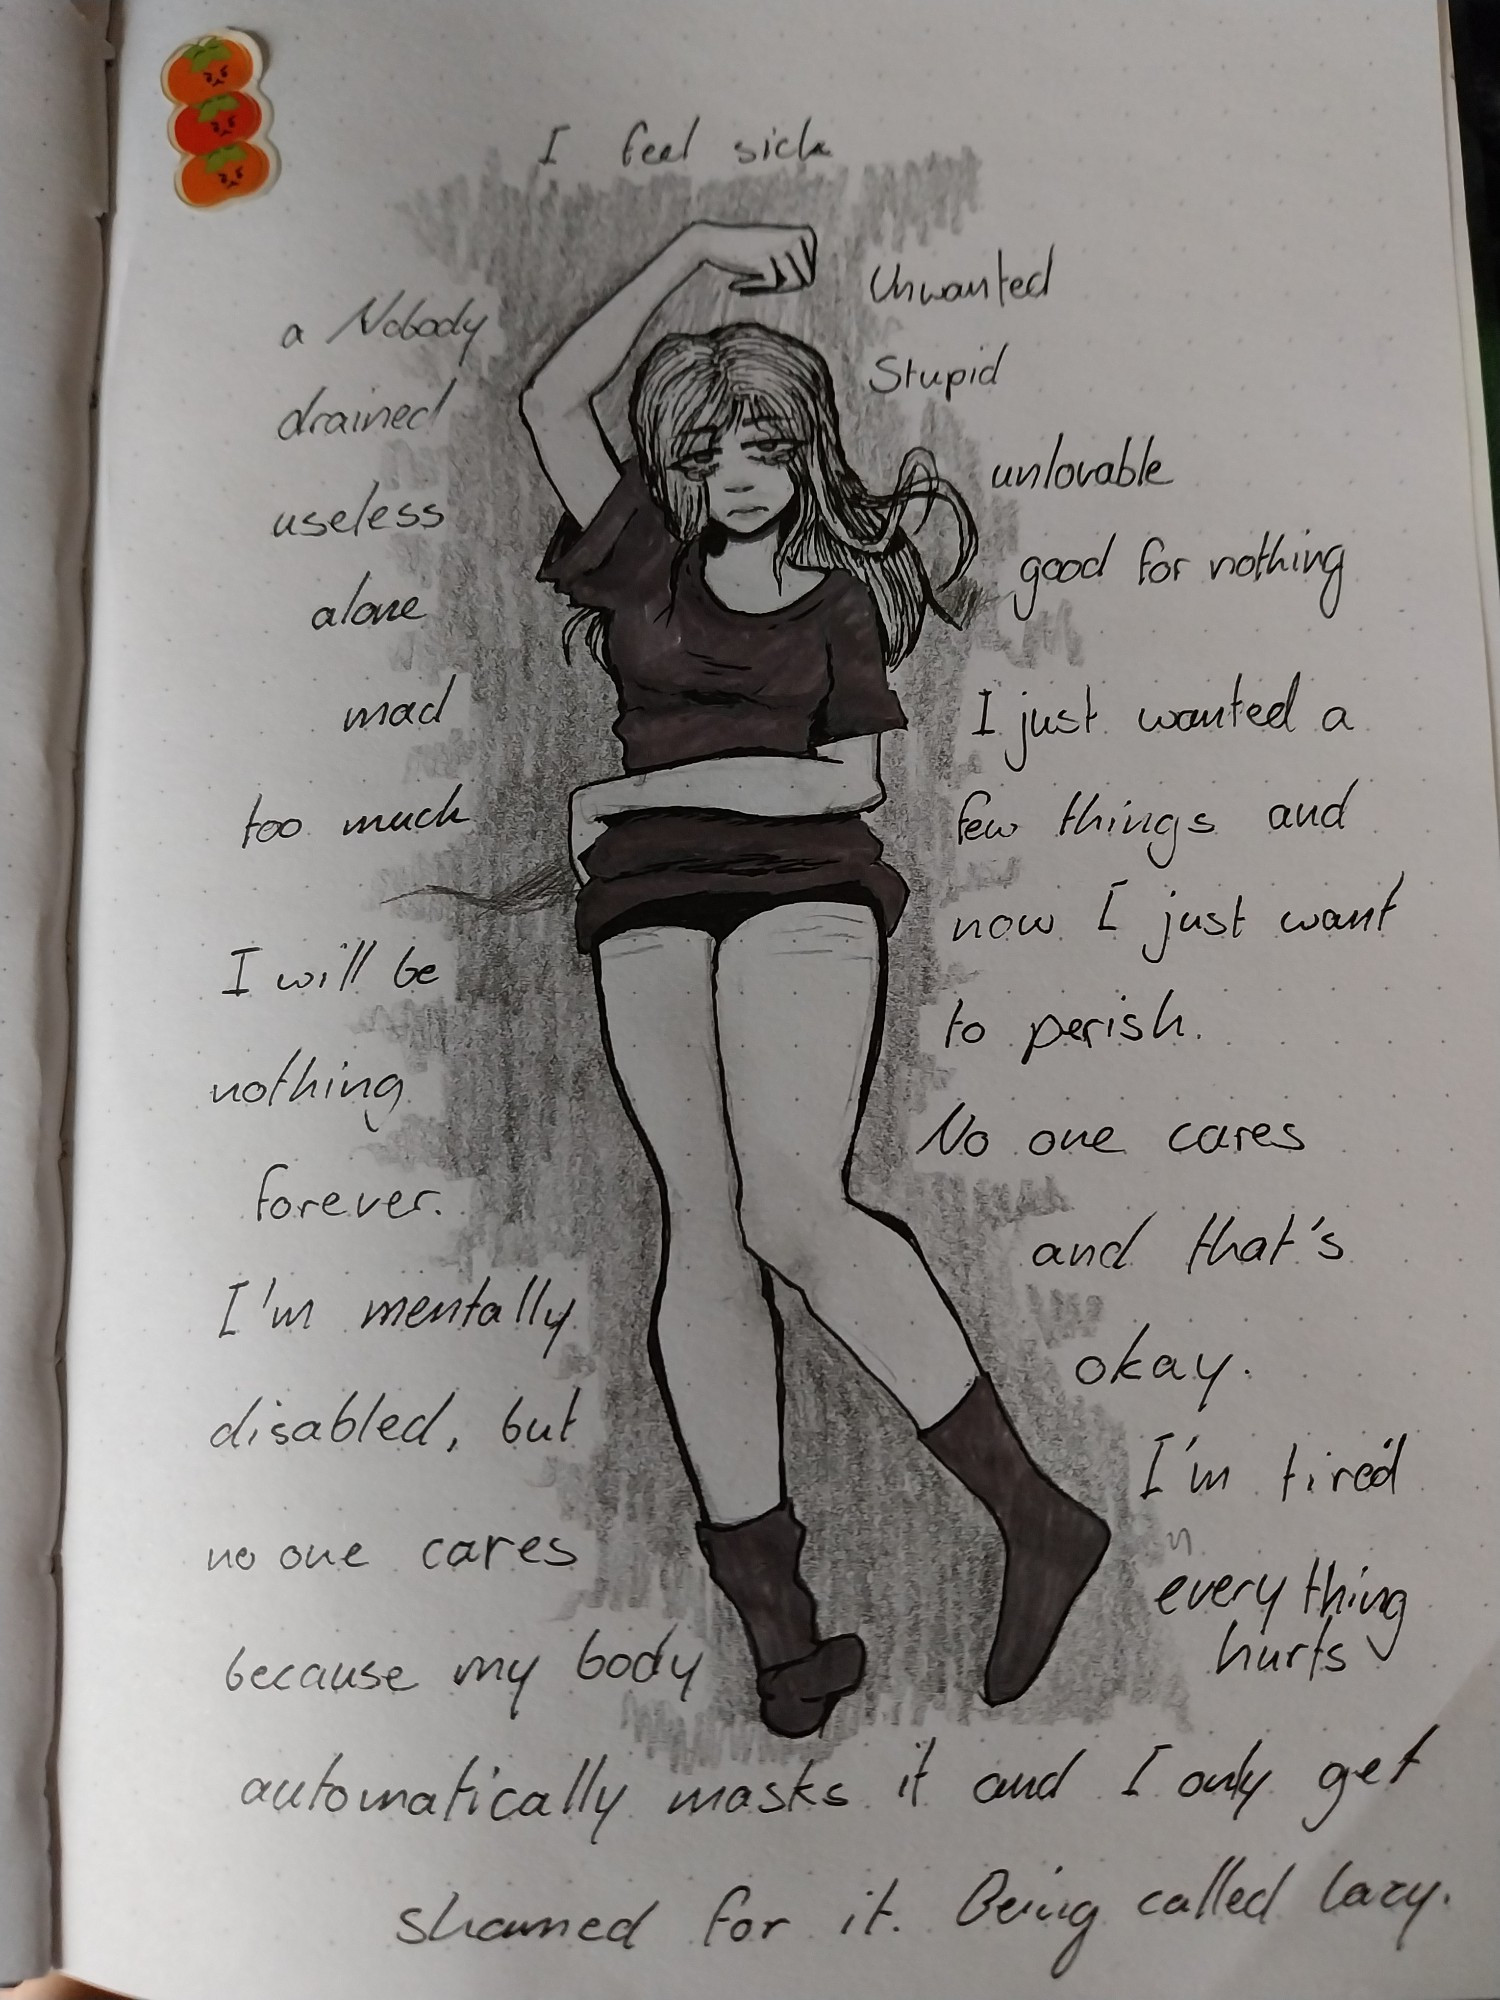 I feel sick
a Nobody
drained
useless
alone
mad
too much
I will be
nothing
forever.
I'm mentally
disabled, but
no one cares
because my body
automatically masks it and I only get
shamed for it. Being called lazy.
Unwanted
Stupid
unlovable
good for nothing
I just wanted a
few things and
now I just want
to perish.
No one cares
and that's
okay.
I'm tired
everything
hurts